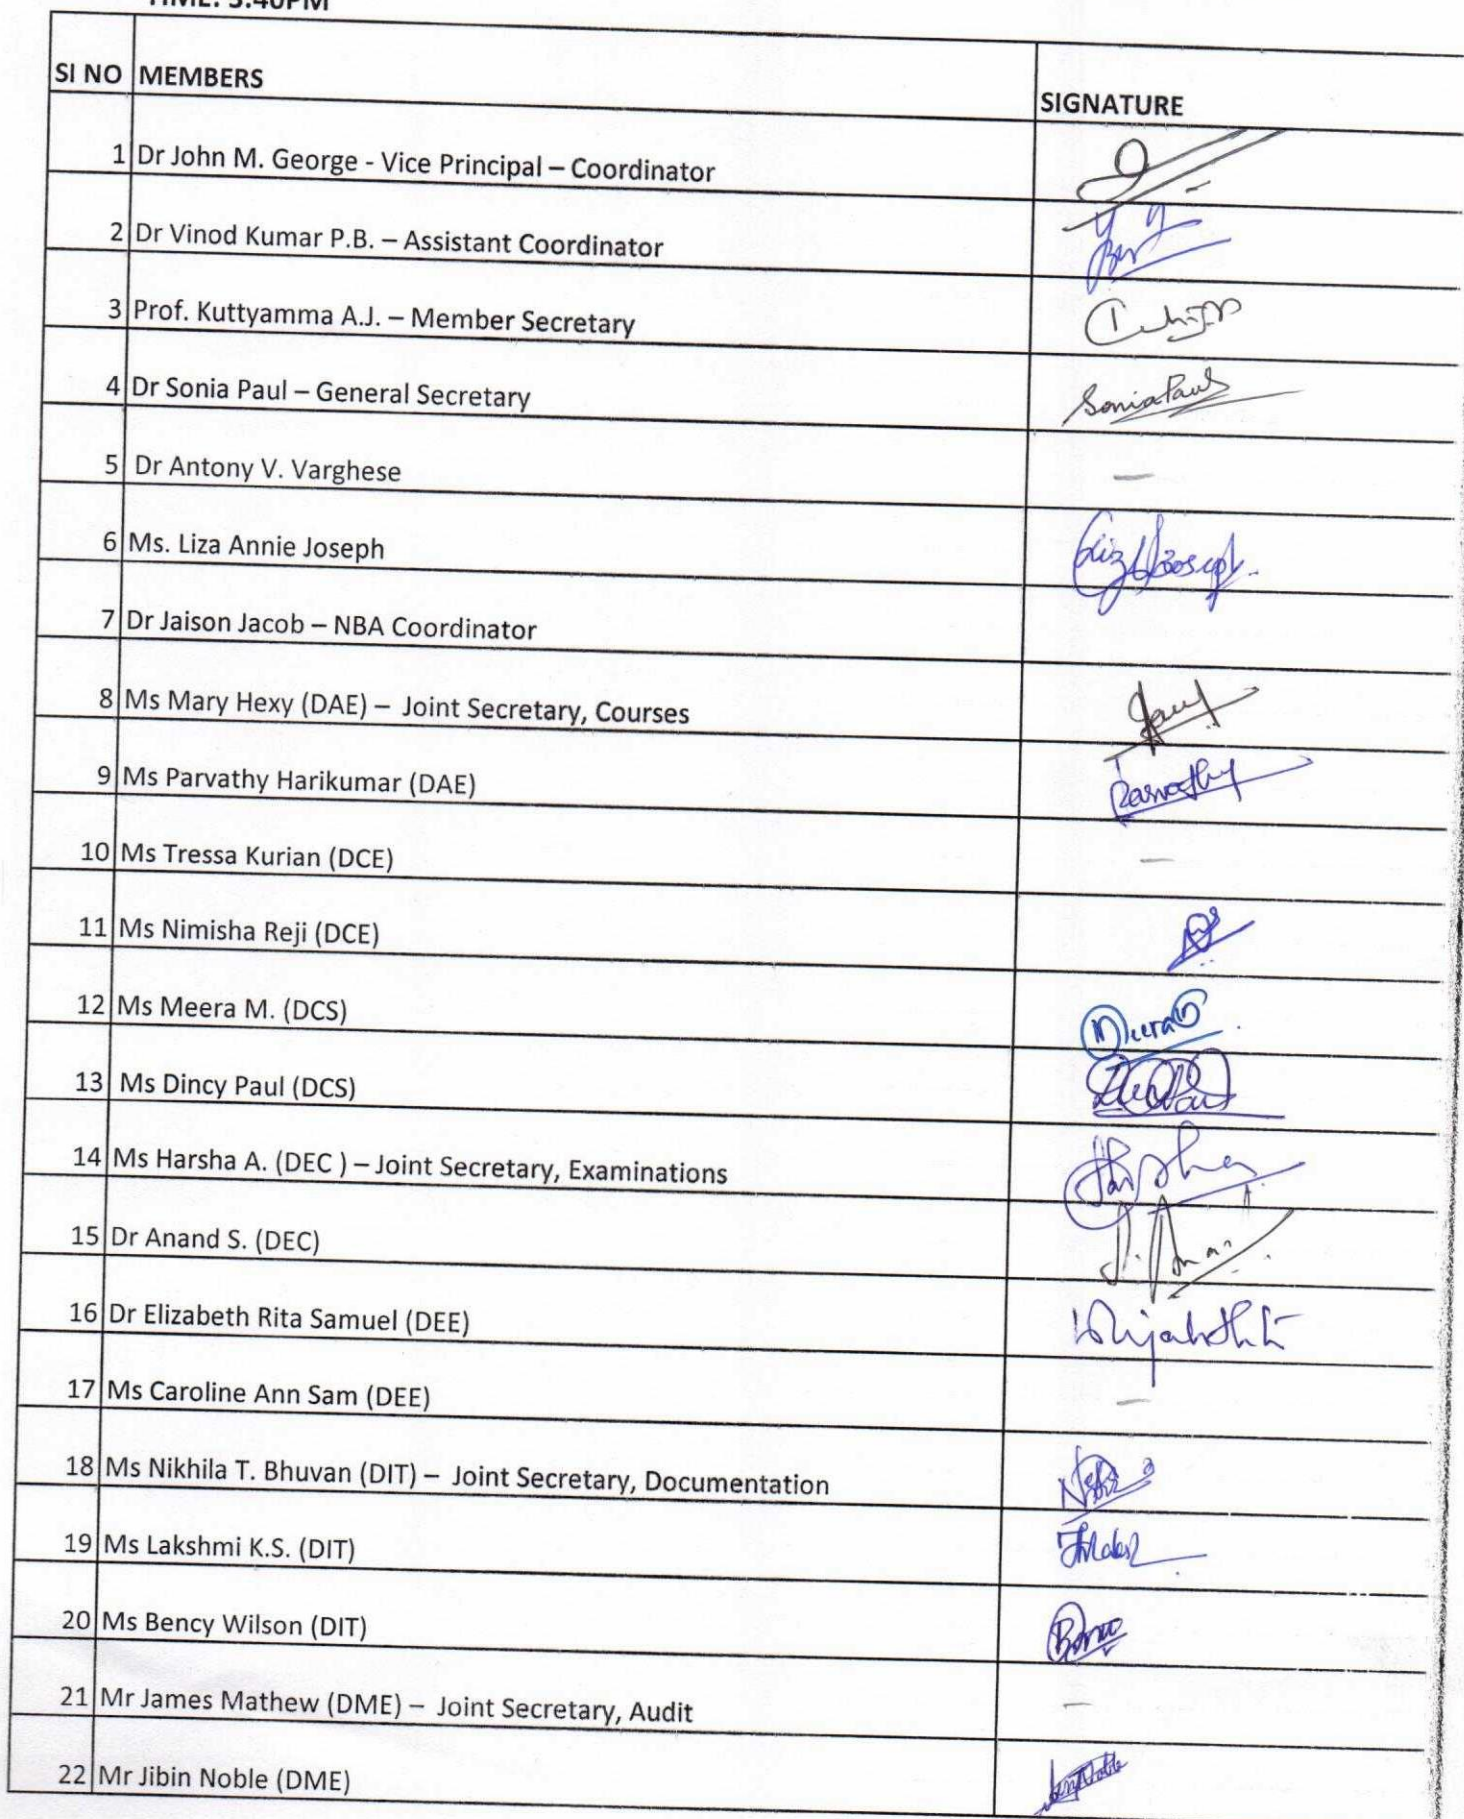 TIME: 3:40PM
SI NO MEMBERS SIGNATURE
1 Dr John M. George - Vice Principal – Coordinator
2 Dr Vinod Kumar P.B. – Assistant Coordinator
3 Prof. Kuttyamma A.J. – Member Secretary
4 Dr Sonia Paul – General Secretary Sonia Paul
5 Dr Antony V. Varghese —
6 Ms. Liza Annie Joseph
7 Dr Jaison Jacob – NBA Coordinator
8 Ms Mary Hexy (DAE) – Joint Secretary, Courses
9 Ms Parvathy Harikumar (DAE) Parvathy
10 Ms Tressa Kurian (DCE) —
11 Ms Nimisha Reji (DCE)
12 Ms Meera M. (DCS) Meera
13 Ms Dincy Paul (DCS)
14 Ms Harsha A. (DEC ) – Joint Secretary, Examinations Harsha
15 Dr Anand S. (DEC)
16 Dr Elizabeth Rita Samuel (DEE)
17 Ms Caroline Ann Sam (DEE) —
18 Ms Nikhila T. Bhuvan (DIT) – Joint Secretary, Documentation
19 Ms Lakshmi K.S. (DIT)
20 Ms Bency Wilson (DIT)
21 Mr James Mathew (DME) – Joint Secretary, Audit —
22 Mr Jibin Noble (DME)